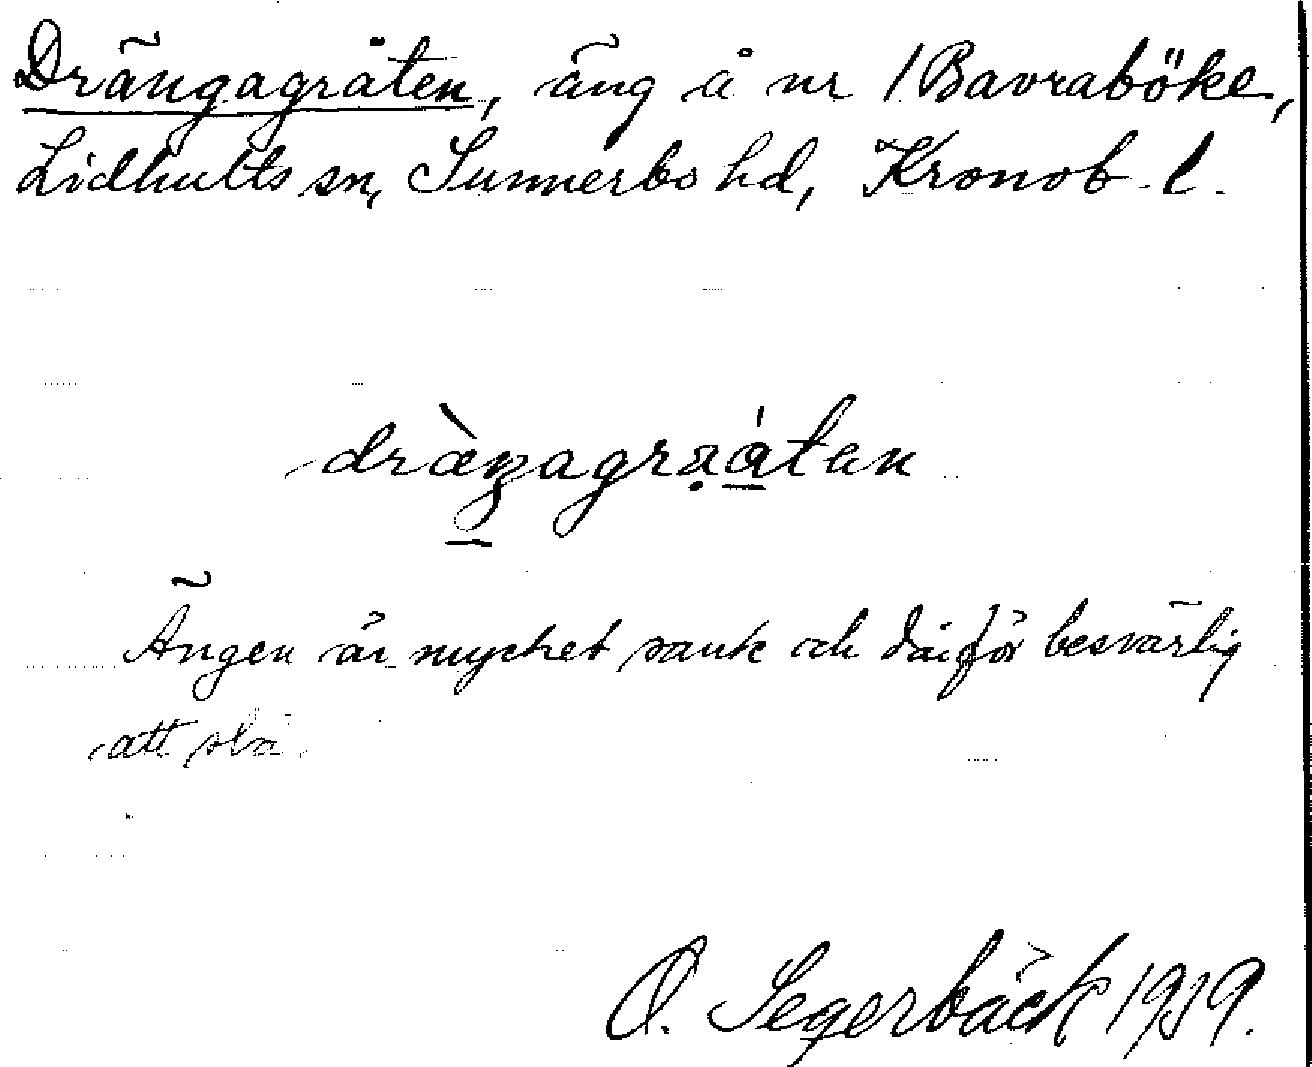 Drängagråten, äng å nr 1 Bavraböke,
Lidhults sn, Sunnerbo hd, Kronob. l.
Ängen är mycket sank och därför besvärlig
att slå.
O. Segerbäck 1919.